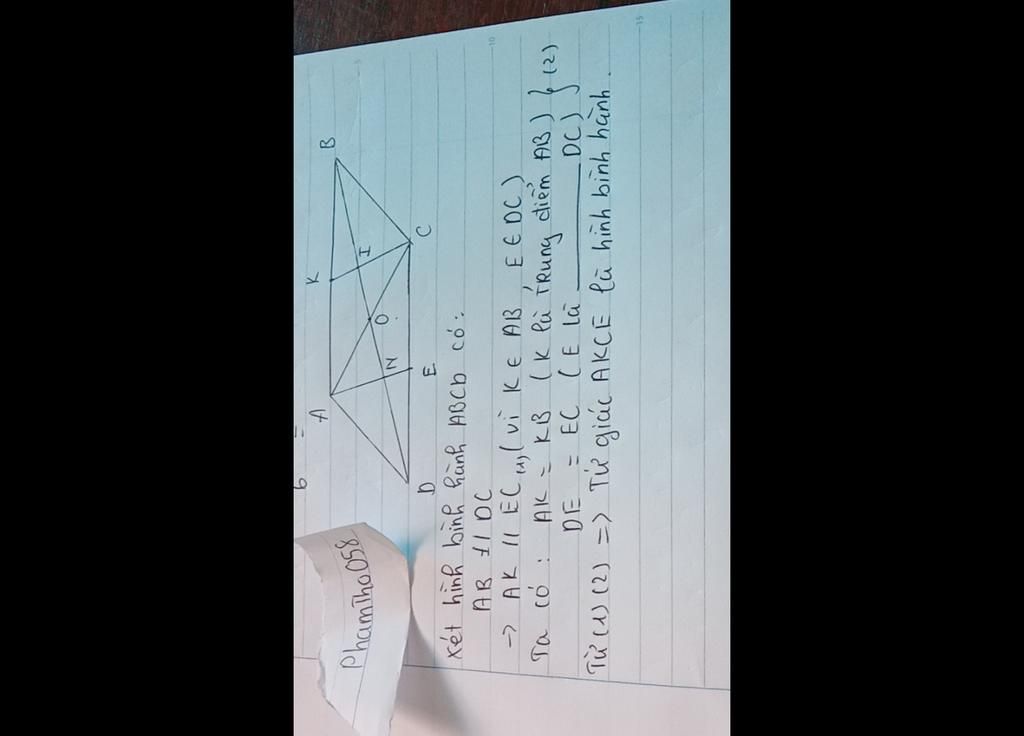 6 =
A K B
N O I
D E C
PhamTho058
Xét hình bình hành ABCD có:
AB // DC
-> AK // EC (1) (vì K ∈ AB, E ∈ DC)
Ta có: AK = KB (K là trung điểm AB) } (2)
DE = EC (E là ______ DC)
Từ (1) (2) => Tứ giác AKCE là hình bình hành.
5 10 15